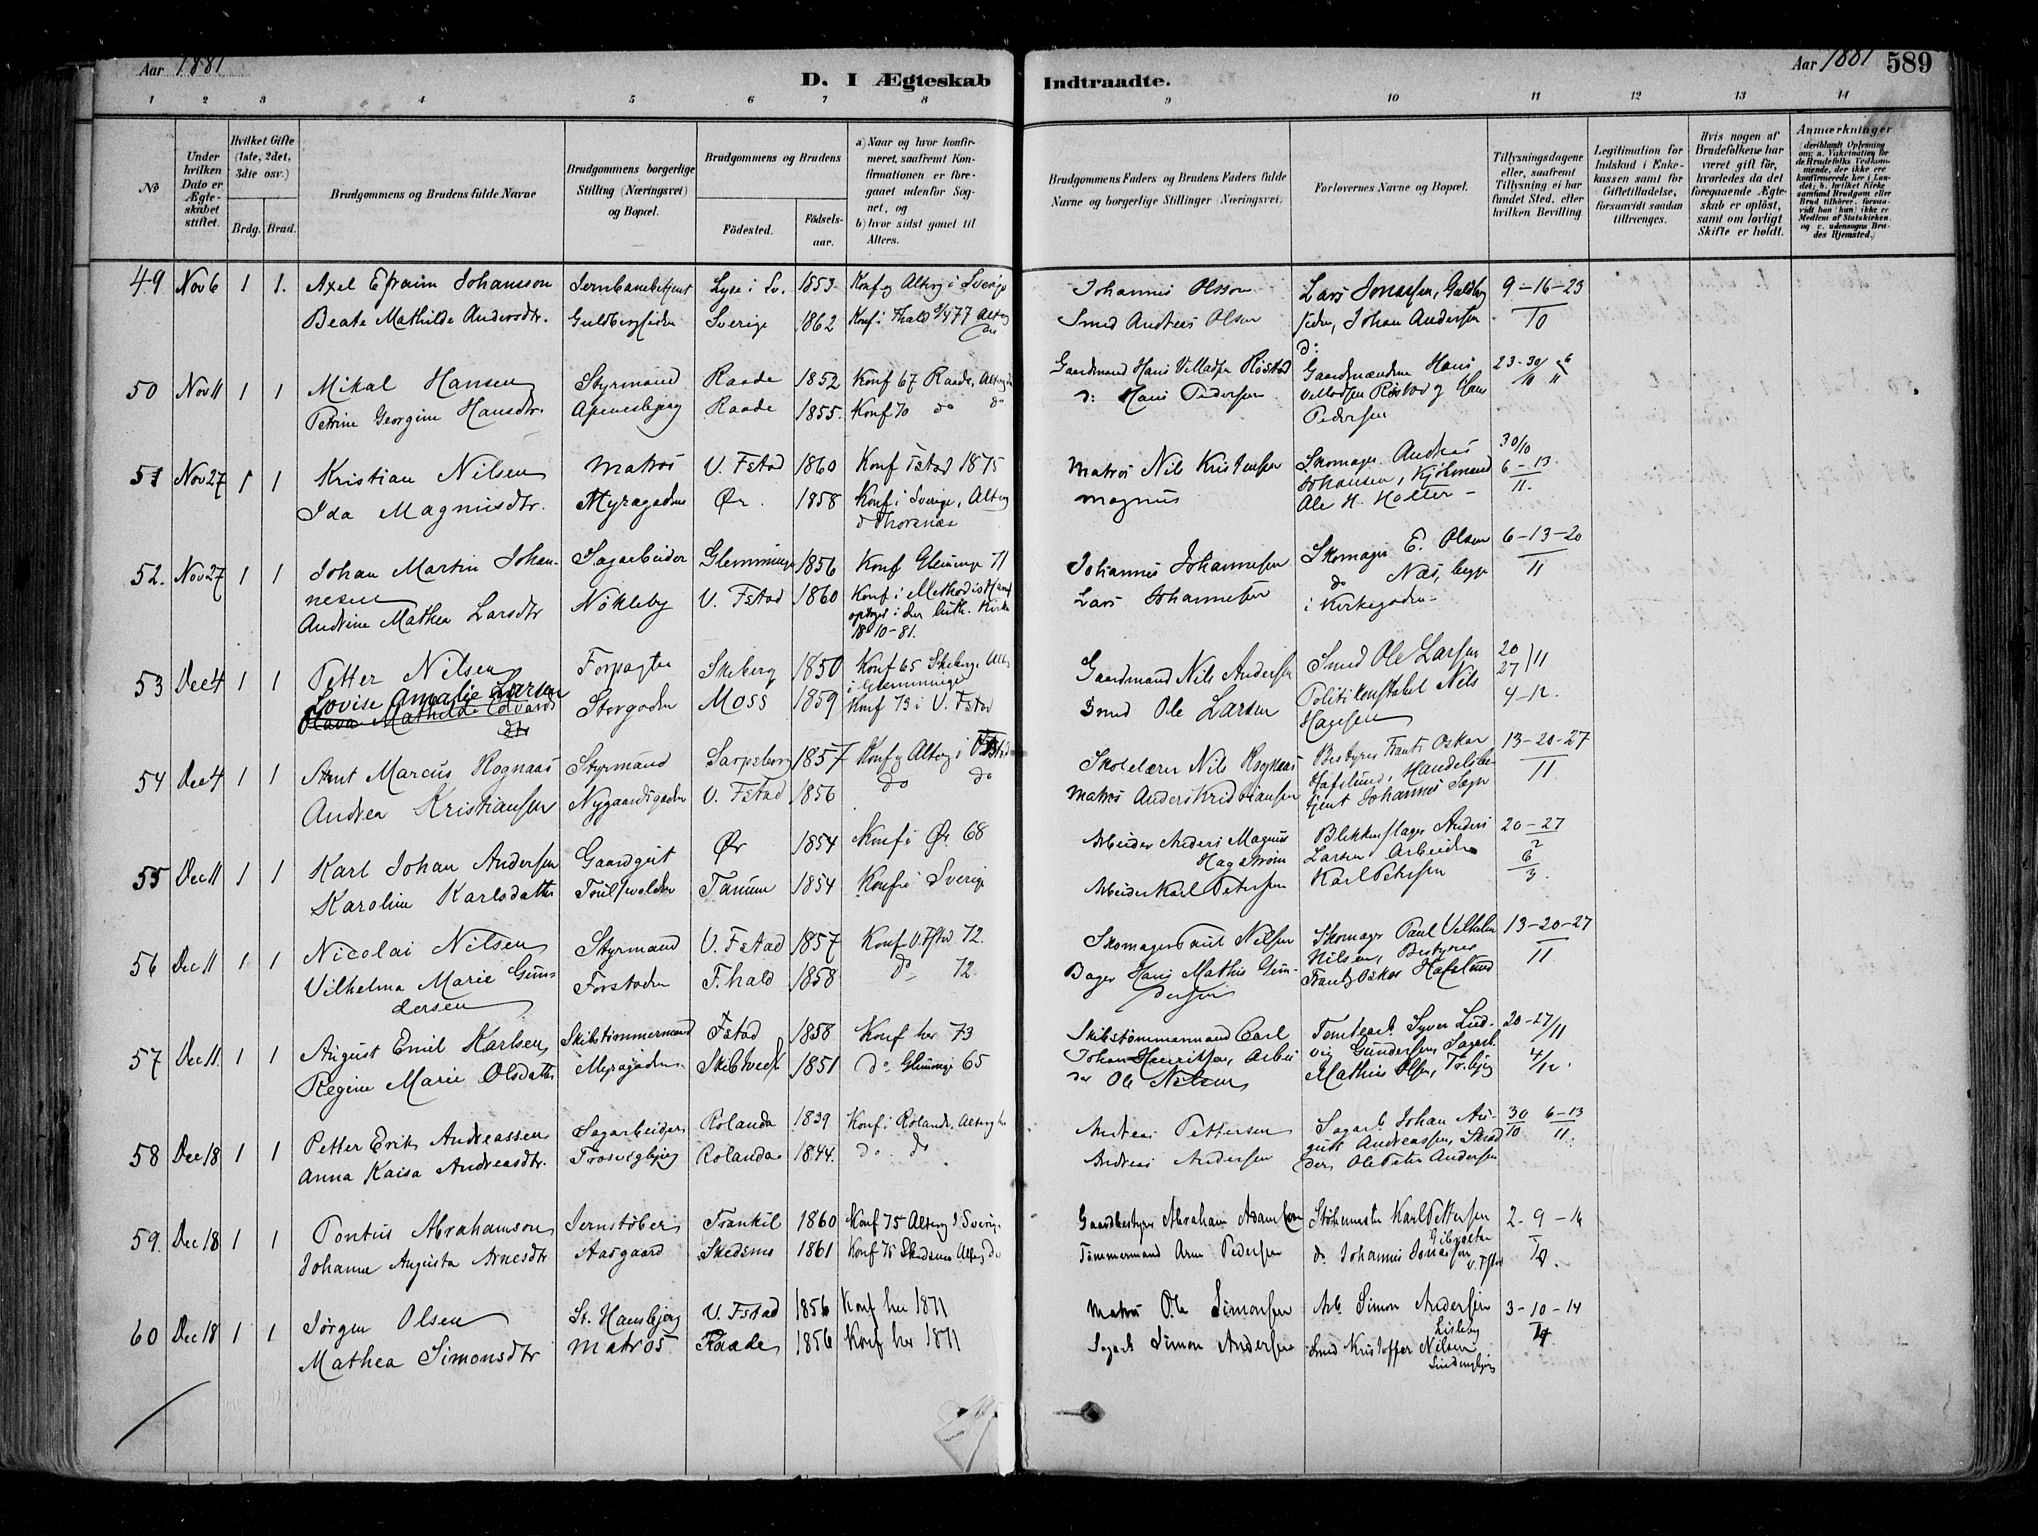 Aar 1881
D. I Ægteskab Indtraadte.
Aar 1881 589
1 2 3 4 5 6 7 8 9 10 11 12 13 14
No
Under hvilken Dato er Ægteskabet stiftet.
Hvilket Gifte (1ste, 2det, 3die osv.)
Brdg. Brud.
Brudgommens og Brudens fulde Navne
Brudgommens borgerlige Stilling (Næringsvei) og Bopæl.
Brudgommens og Brudens
Fødested. Fødselsaar.
a) Naar og hvor konfirmeret, saafremt Konfirmationen er foregaaet udenfor Sognet, og
b) hvor sidst gaaet til Alters.
Brudgommens Faders og Brudens Faders fulde Navne og borgerlige Stillinger (Næringsvei)
Forlovernes Navne og Bopæl.
Tillysningsdagene eller, saafremt Tillysning ei har fundet Sted, efter hvilken Bevilling.
Legitimation for Indskud i Enkekassen samt for Giftetilladelse, forsaavidt saadan tiltrænges.
Hvis nogen af Brudefolkene har været gift før, hvorledes da det foregaaende Ægteskab er opløst, samt om lovligt Skifte er holdt.
Anmærkninger
49 Nov 6 1 1. Axel Efraim Johansson Jernbanebetjent Lyse i Sv. 1853 Konf og Alterg i Sverige Johannes Olsson Lars Jonassen, Guldberg 9-16-23
Beate Mathilde Andersdtr. Guldbergsiden Sverige 1862 Smed Andreas Olsen siden, Johan Andersen 10
50 Nov 11 1 1 Mikal Hansen Styrmand Raade 1852 Konf 67 Raade, Gaardmand Hans Villadsen Røstad Gaardmændene Hans 23-30/10 6/11
Petrine Georgine Hansdtr. Apenesbjerg Raade 1855. Konf 70 do do do: Hans Pedersen Villadsen Røstad og Hans
Pedersen
51 Nov 27 1 1 Kristian Nilsen Matros V. Fstad 1860 Konf Fstad 1875 Matros Nils Kristensen Skomager Andreas 30/10
Ida Magnusdtr. Myragaden Ør. 1858 Konf i Sverige, Alterg Magnus Johansen, Kjøbmand 6-13
Thorsnæs Ole H. Holter - 11.
52. Nov 27 1 1 Johan Martin Johan- Sagarbeider Glemminge 1856 Konf Glemminge 71 Johannes Johannesen Skomager E. Olsen 6-13-20
nesen Nøkleby V. Fstad 1860 Konf i Methodist Lars Johannesen do Næs, begge 11
Andrine Mathea Larsdtr optaget i den luth. Kirke i Kirkegaden
18 10-81.
53 Dec 4 1 1 Petter Nilsen Forpagter Skeberg 1850 Konf 65 Skeberg Gaardmand Nils Andersen Smed Ole Larsen 20
Lovise Amalie Larsen Storgaden Moss 1859 i Glemminge Smed Ole Larsen Politikonstabel Nils 27/11
Olava Mathilde Edvardsdtr Konf 73 i V. Fstad Hagesen 4-12.
54 Dec 4 1 1 Arnt Marcus Rognaas Styrmand Sarpsborg 1857 Konf og Alterg i Skolelærer Nils Rognaas Bestyrer Frants Oskar 13-20-27
Andrea Kristiansen Nygaardsgaden V. Fstad 1856 do do Matros Anders Kristiansen Hafslund, Handelsbe- 11
tjent Johannes
55 Dec 11 1 1 Karl Johan Andersen Gaardgut Ør 1854 Konf i Ør 68 Arbeider Anders Magnus Blikkenslager Anders 20-27
Karoline Karlsdatter Tanum 1854 Konf i Sverige Hagstrøm Larsen, Arbeider
Arbeider Karl Petersen Karl Petersen
56 Dec 11 1 1 Nicolai Nilsen Styrmand V. Fstad 1857 Konf V. Fstad 72. Skomager Nilsen Skomager Paul Vilhelm 13-20-27
Vilhelma Marie Gun- Forstaden F.hald 1858 do 72 Bager Hans Mathis Gun- Nilsen, Bestyrer 11
dersen dersen Frantz Oskar Hafslund
57 Dec 11. 1 1 August Emil Karlsen Skibstømmermand Fstad 1858 Konf her 73 Skibstømmermand Carl Tomtearb. Syver Lud- 20-27/11
Regine Marie Olsdatter Myragaden Skibtvedt 1851 do Glemminge 65 Johan Henriksen, Arbei vig Gundersen, Sagarb. 4/12.
der Ole Nilsen Mathias Olsen,
58 Dec 18 1 1 Petter Erik Andreassen Sagarbeider Rolanda 1839 Konf i Rolanda. Alterg her Andreas Pettersen Sagarb Johan Au- 30/10 6-13/11.
Anna Kaisa Andreasdtr. Trosvigbjerg Rolanda 1844. do do Andreas Andersen gust Andreassen, Skræd
der Ole Peter Andersen
59. Dec 18 1 1 Pontus Abrahamson Jernstøber Frankil 1860 Konf 75 Alterg i Sverige Gaardbestyrer Abraham Adamson Støbemester Karl Pettersen 2-9-16
Johanne Augusta Arnesdtr Aasgaard Skedsmo 1861 Konf 75 Skedsmo Alterg do Tømmermand Arne Pedersen do. Johannes Jonassen Gibralter 10.
V. Fstad
60 Dec 18 1 1 Jørgen Olsen St. Hansbjerg V. Fstad 1856 Konf her 1871 Matros Ole Simonsen Arb. Simon Andersen 3-10-14
Mathea Simonsdtr Matros Raade 1856 Konf her 1871 Sagarb Simon Andersen Lisleby
Smed Kristoffer Nilsen